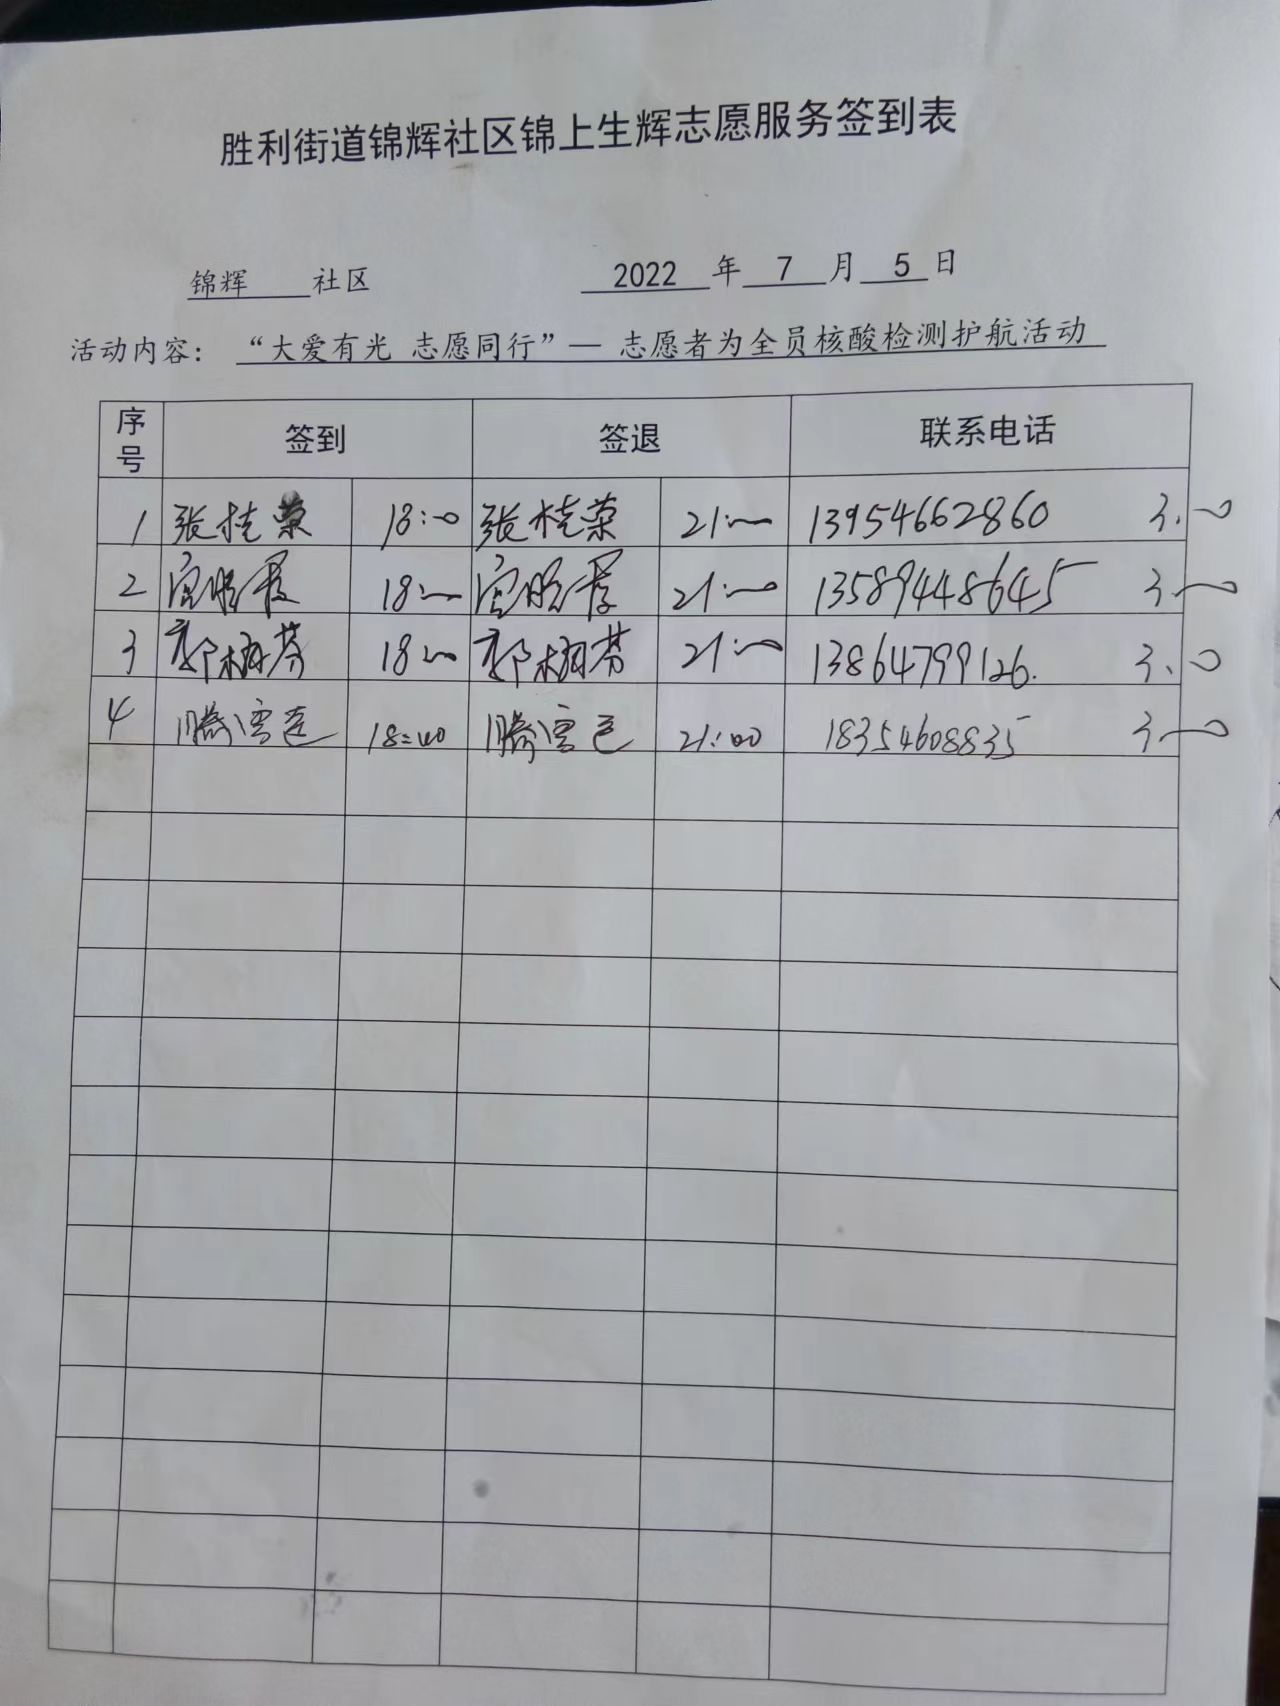 胜利街道锦辉社区锦上生辉志愿服务签到表
锦辉 社区 2022 年 7 月 5 日
活动内容: “大爱有光 志愿同行”— 志愿者为全员核酸检测护航活动
序号 签到 签退 联系电话
1 张桂荣 18:00 张桂荣 21:00 13954662860 3.00
2 18:00 21:00 13589448645 3.00
3 18:00 21:00 13864799126. 3.00
4 18:00 21:00 18354608835 3.00